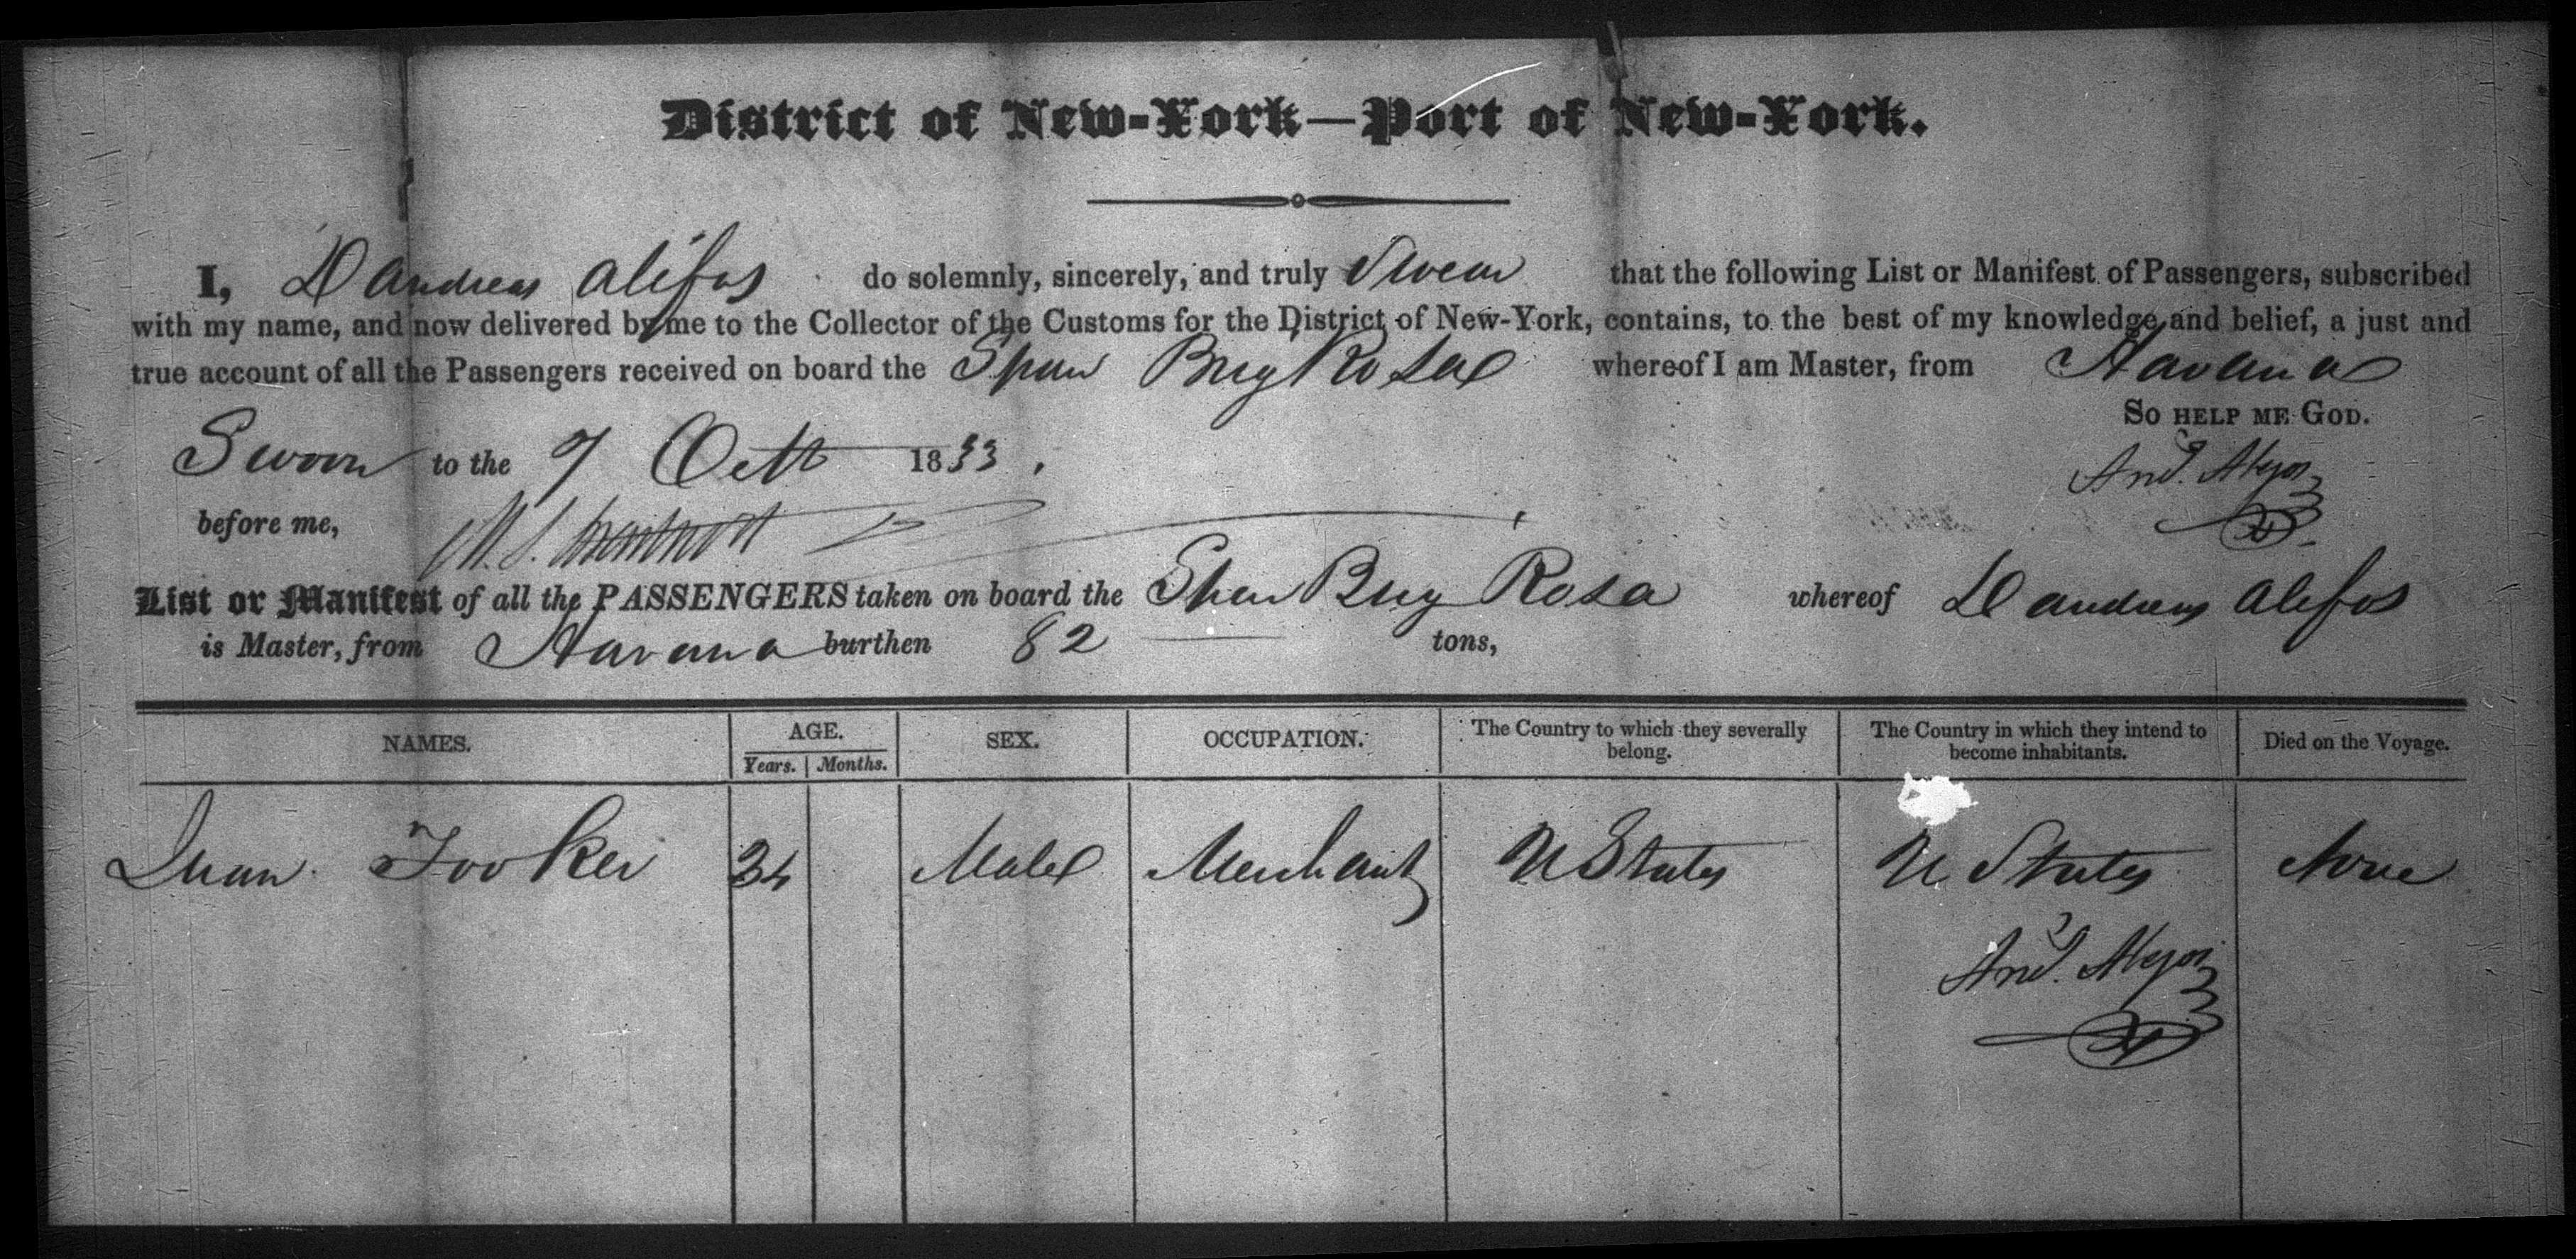 District of New-York—Port of New-York.
I, D Andreas Alifos do solemnly, sincerely, and truly Swear that the following List or Manifest of Passengers, subscribed
with my name, and now delivered by me to the Collector of the Customs for the District of New-York, contains, to the best of my knowledge and belief, a just and
true account of all the Passengers received on board the Span Brig Rosa whereof I am Master, from Havana
So help me God.
Sworn to the 7 Octr 1833.
And. Alejos
before me,
List or Manifest of all the PASSENGERS taken on board the Span Brig Rosa whereof D Andreas Alifos
is Master, from Havana burthen 82 tons,
NAMES. AGE. SEX. OCCUPATION. The Country to which they severally belong. The Country in which they intend to become inhabitants. Died on the Voyage.
Years. Months.
Juan Tooker 34 Male Merchant U States U States None
And. Alejos